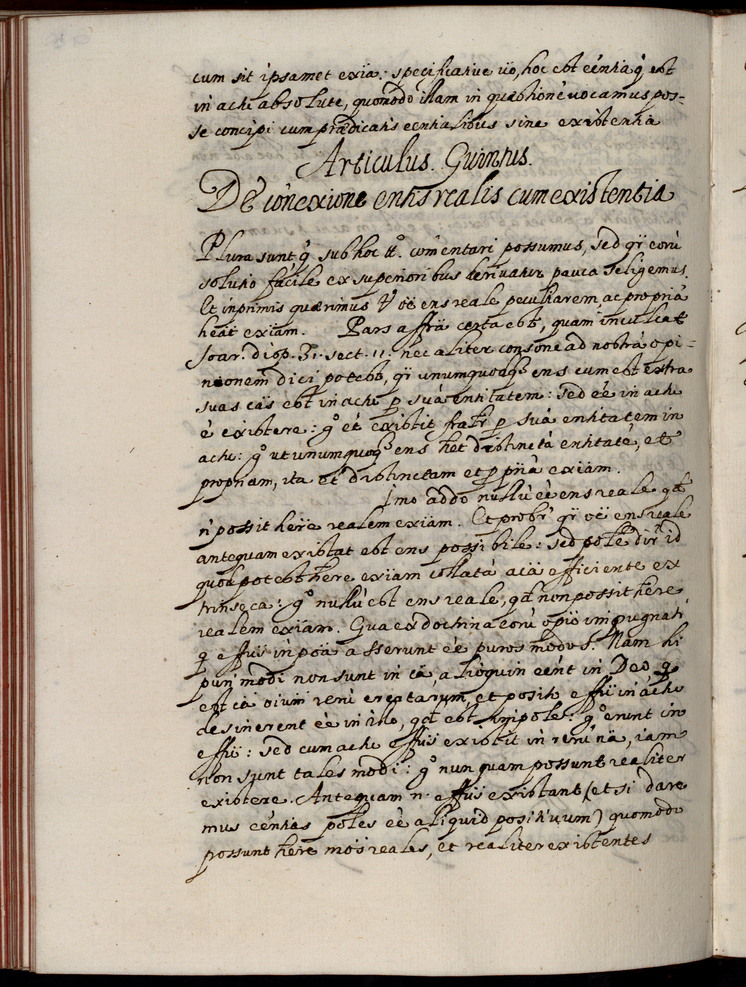 cum sit ipsamet exīa: specificative vō, hoc est eēntia q̄ est
in actu absolute, quomodo illam in quæstione vocamus pos-
se concipi cum prædicatis eēntialibus sine existentia
Articulus Quintus.
De cōnexione entis realis cum existentia
Plura sunt q̄ sub hoc tt.º comentari possumus, sed q̄ȳ eorū
solutio facile ex superioribus derivatur pauca seligemus.
Et inprimis quærimus oē ens reale peculiarem, ac propriā
heāt exīam. Pars affrā certa est, quam inculcat
Soar. disp. 31. sect. 11. nec aliter consone ad nostrā opi-
nionem dici potest, q̄ȳ unumquodq̄ ens cum est extra
suas cās est in actu p suā entitatem: sed eē in actu
ē existere: gº et existit frātr p suā entitatem in
actu: gº ut unumquoq̄ ens het distinctā entitatē, et
propriam, ita et distinctam et ppriā exīam.
Imo addo nullū eē ens reale qd̄
n̄ possit herē realem exīam. Et probr̄ q̄ȳ oē ens reale
antequam existat est ens possibile: sed pole dir̄ id
quod potest here exīam collatā a cā efficiente ex
trinseca: gº nullū est ens reale, qd̄ non possit herē
realem exīam. Qua ex doctrina eorū opīo impugnatr̄
q̄ effūs in poā asserunt eē puros modos. Nam hi
puri modi non sunt in cā, alioquin eēnt in Deo q̄
est cā oium rerū creatarum, et positi effū in actu
desinerent eē in illo, qd̄ est impole: gº erunt in
effū: sed cum actu effūs existit in rerū nā, iam
non sunt tales modi: gº nunquam possunt realiter
existere. Antequam n. effūs existant (etsi dare
mus eēntias poles eē aliquid positivum) quomodo
possunt herē modos reales, et realiter existentes